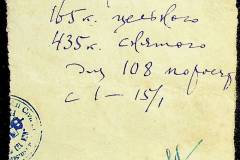 165к. цельного
435к. снятого
для 108 поросят
с 1 — 15/I